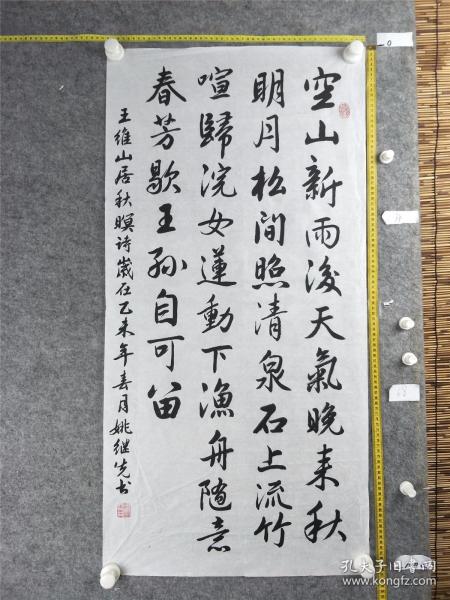 空山新雨後天氣晚来秋
明月松间照清泉石上流竹
喧歸浣女蓮動下漁舟随意
春芳歇王孙自可留
王維山居秋暝詩歲在乙未年春月姚继先书
孔夫子旧书网
www.kongfz.com